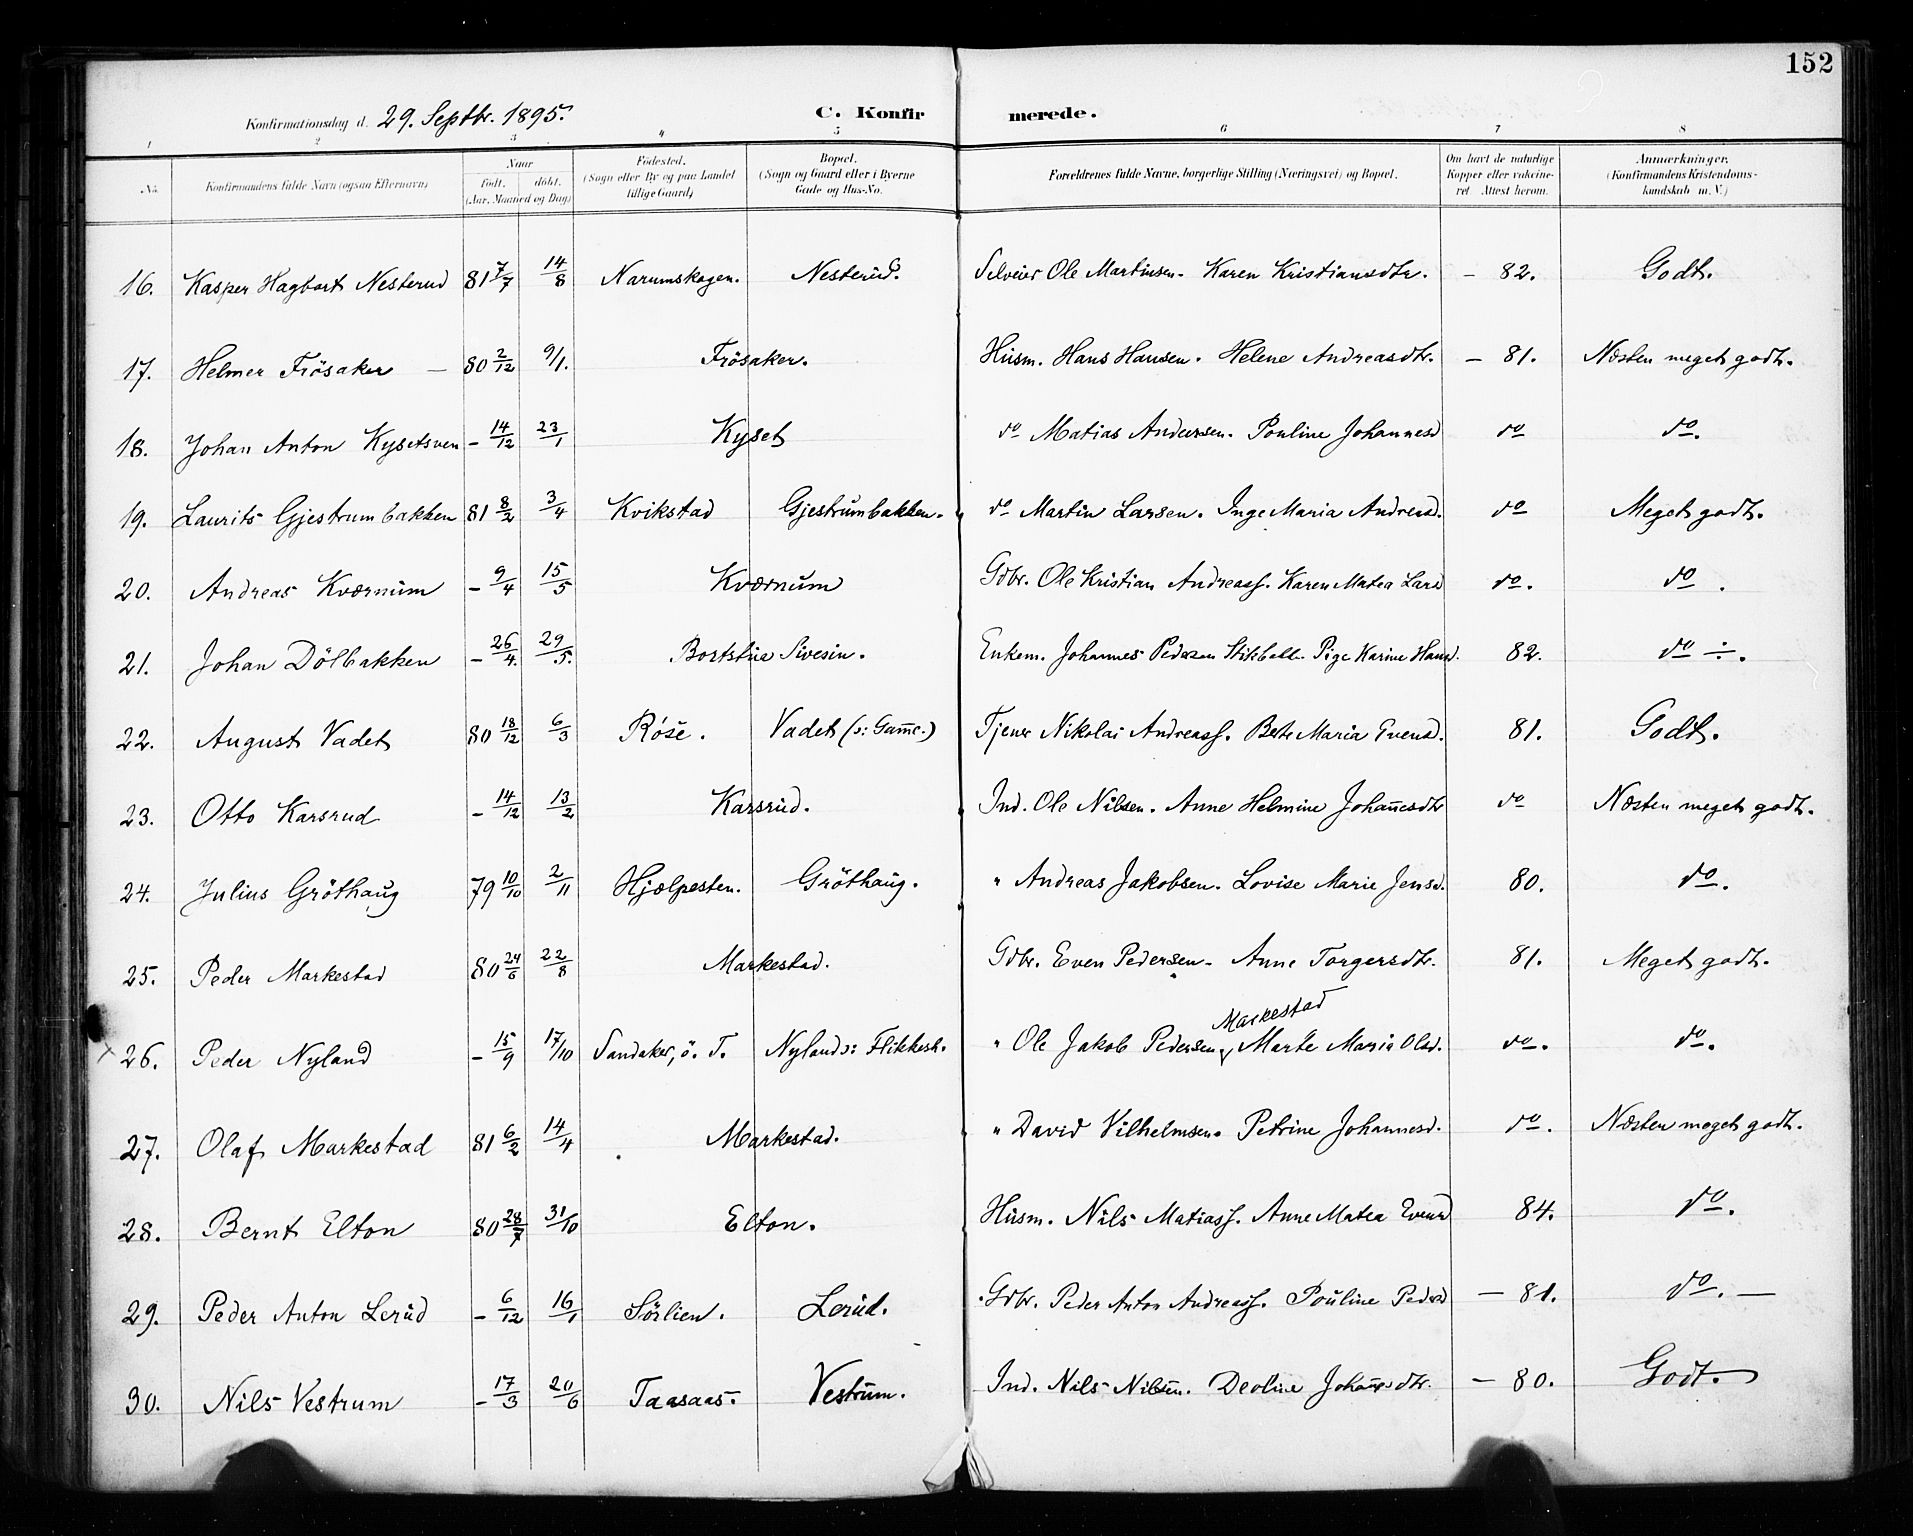 152
Konfirmationsdag d. 29. Septbr. 1895.
C. Konfirmerede.
1 2 3 4 5 6 7 8
No. Konfirmandens fulde Navn (ogsaa Efternavn) Naar født. døbt. (Aar, Maaned og Dag) Fødested. (Sogn eller By og paa Landet tillige Gaard) Bopæl. (Sogn og Gaard eller i Byerne Gade og Hus-No. Forældrenes fulde Navne, borgerlige Stilling (Næringsvei) og Bopæl. Om havt de naturlige Kopper eller vakcineret Attest herom. Anmærkninger. (Konfirmandens Kristendomskundskab m. V.)
16. Kasper Hagbart Nesterud 81 7/7 14/8 Narumskogen. Nesterud. Selveier Ole Martinsen. Karen Kristiansdtr. – 82. Godt.
17. Helmer Frösaker – 80 2/12 9/1. Frösaker. Husm. Hans Hansen. Helene Andreasdtr. – 81. Næsten meget godt.
18. Johan Anton Kysetsven – 14/12 23/1 Kyset do Matias Andersen. Pouline Johannesd do do.
19. Laurits Gjestrumbakken 81 8/2 3/4 Kvikstad Gjestrumbakken. do Martin Larsen. Inge Maria Andreasd. do Meget godt.
20. Andreas Kværnum – 9/4 15/5 Kværnum Gdbr. Ole Kristian Andreass. Karen Matea Larsd do. do.
21. Johan Dölbakken – 26/4. 29/5. Bortstue Sivesin. Enkem. Johannes Pedersen Stikball. Pige Karine Hansd. 82. do ÷.
22. August Vadet 80 18/12 6/3 Röse. Vadet (ɔ: Gamc.) Tjener Nikolai Andreass. Berte Maria Evensd. 81. Godt.
23. Otto Karsrud – 14/12 13/2 Karsrud. Ind. Ole Nilsen. Anne Helmine Johannesdtr do Næsten meget godt.
24. Julius Gröthaug 79 10/10 2/11 Hjælpesten. Gröthaug. " Andreas Jakobsen. Lovise Marie Jensd. 80. do.
25. Peder Markestad 80 24/6 22/8 Markestad. Gdbr. Even Pedersen. Anne Torgersdtr. 81. Meget godt.
Markestad
26. Peder Nyland – 15/9 17/10 Sandaker, ö. T. Nyland ɔ: Flikkesh. " Ole Jakob Pedersen, Marte Maria Olsd. do. do.
27. Olaf Markestad 81 6/2 14/4 Markestad. " David Vilhelmsen. Petrine Johannesd. do. Næsten meget godt.
28. Bernt Elton 80 28/7 31/10 Elton. Husm. Nils Matiass. Anne Matea Evensd 84. do.
29. Peder Anton Lerud – 6/12 16/1 Sörlien. Lerud. Gdbr. Peder Anton Andreass. Pouline Pedersd – 81. do. –
30. Nils Vestrum – 17/3 20/6 Taasaas. Vestrum. Ind. Nils Nilsen. Deoline Johannesdtr. – 80. Godt.